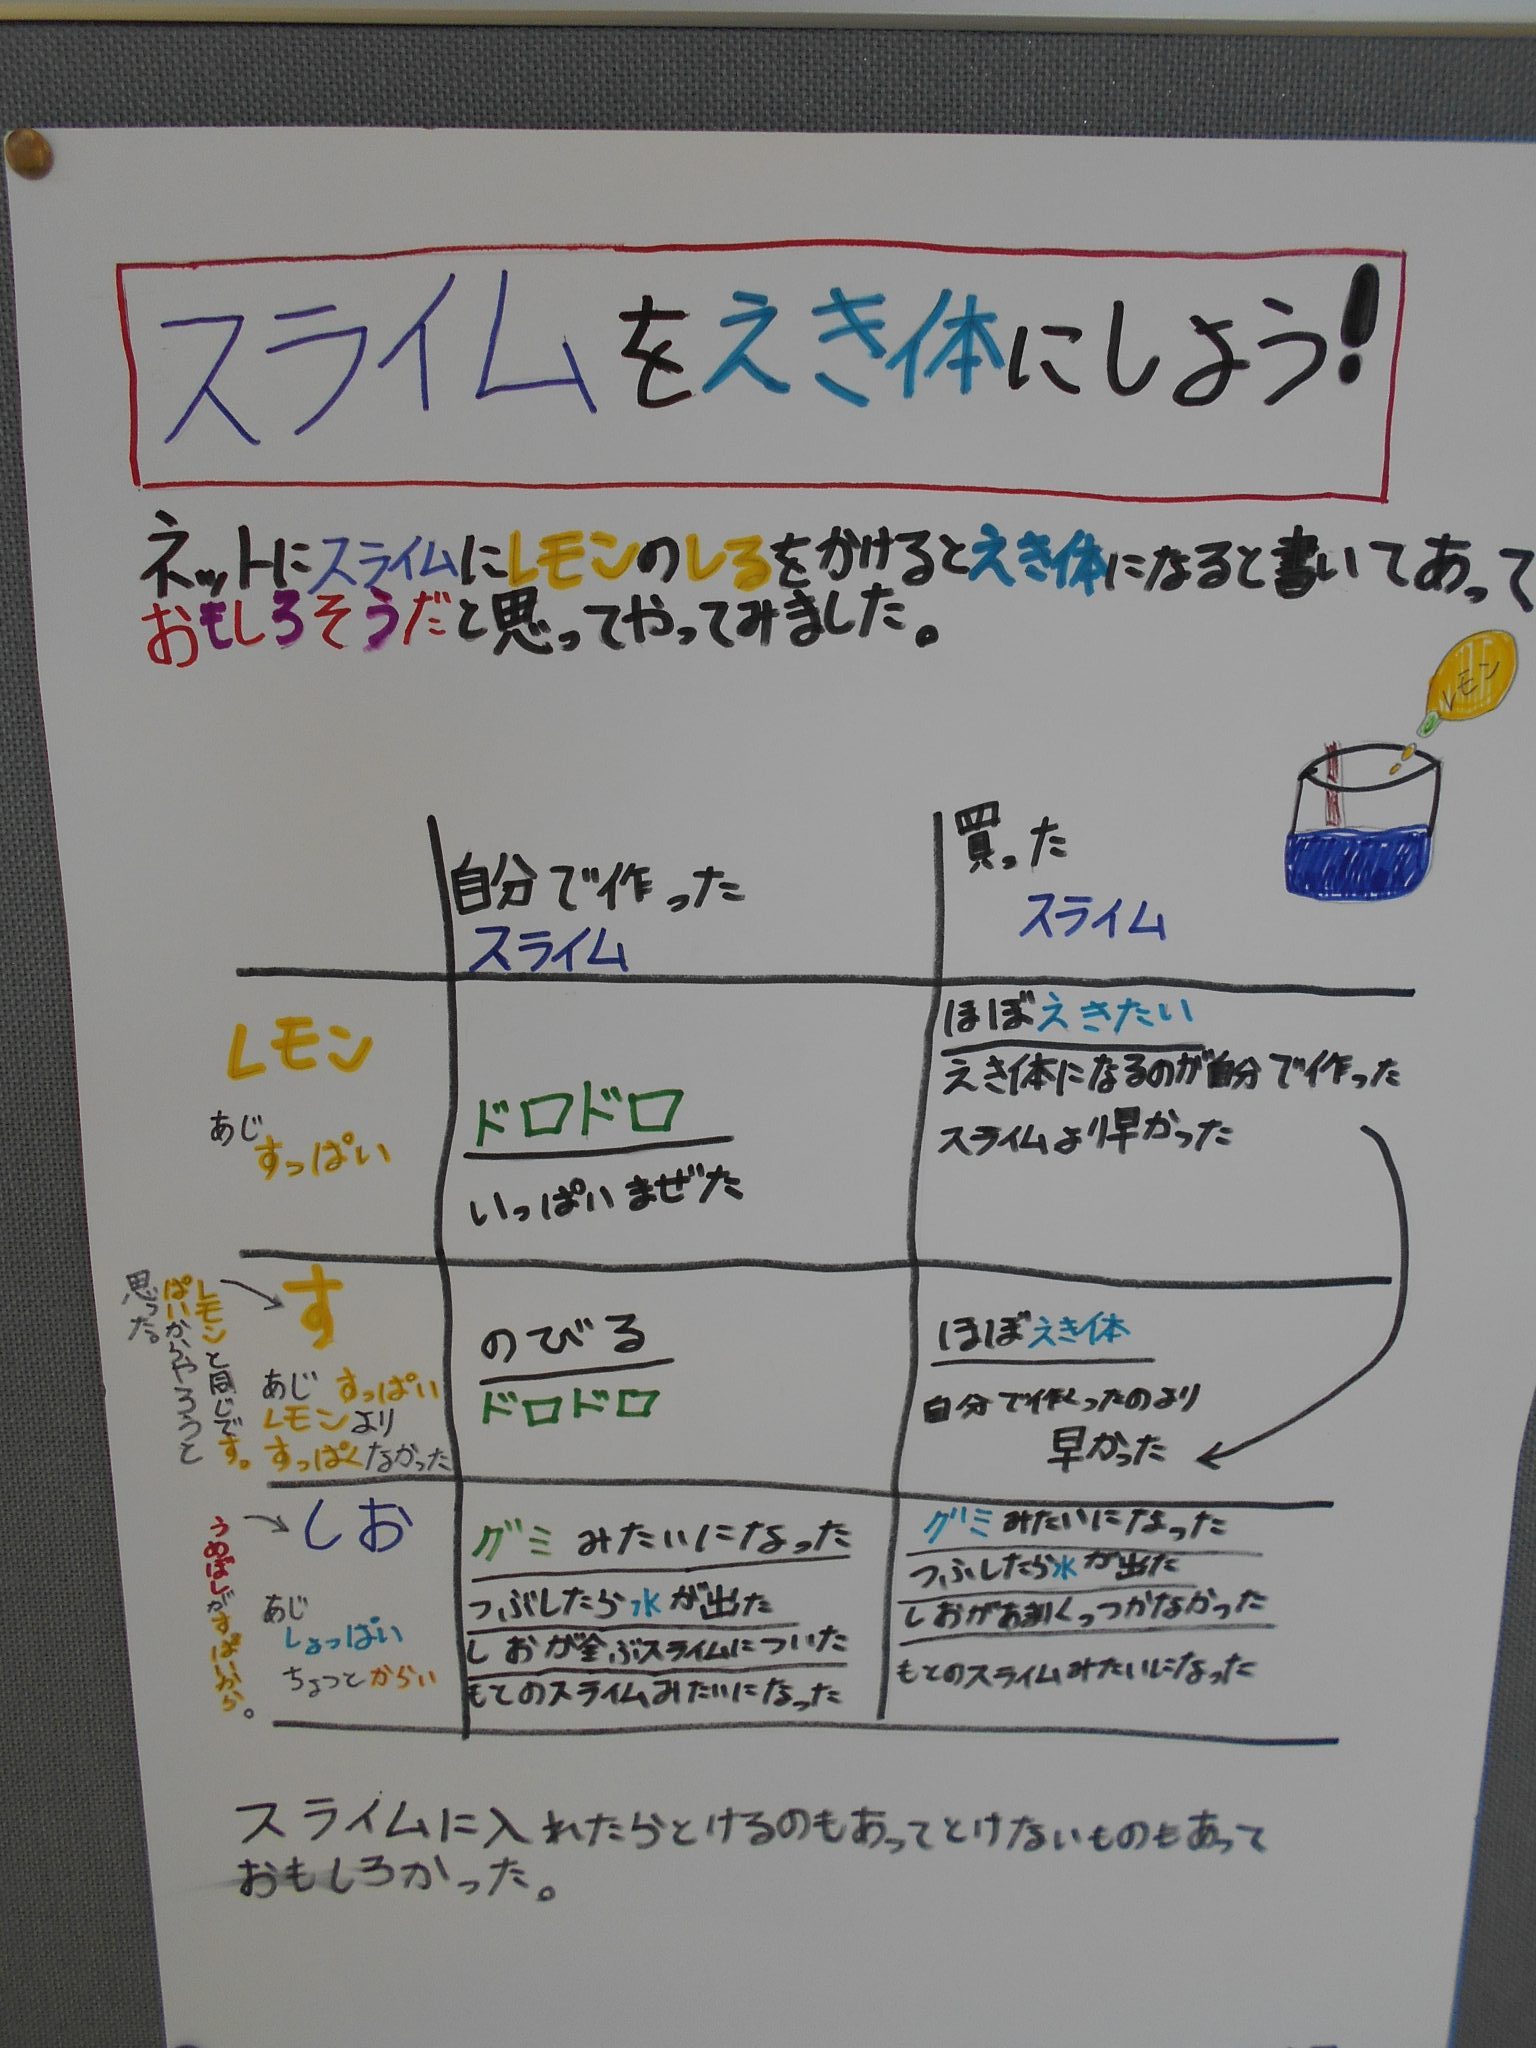 スライムをえき体にしよう!
ネットにスライムにレモンのしるをかけるとえき体になると書いてあって
おもしろそうだと思ってやってみました。
レモン
自分で作った
スライム
買った
スライム
レモン
あじ
すっぱい
ドロドロ
いっぱいまぜた
ほぼえきたい
えき体になるのが自分で作った
スライムより早かった
レモンと同じです。
ぱいからやろうと
思った。
す
あじ すっぱい
レモンより
すっぱくなかった
のびる
ドロドロ
ほぼえき体
自分で作くったのより
早かった
うめぼしがすぱいから。
しお
あじ
しょっぱい
ちょっとからい
グミみたいになった
つぶしたら水が出た
しおが全ぶスライムについた
もとのスライムみたいになった
グミみたいになった
つぶしたら水が出た
しおがあまりくっつかなかった
もとのスライムみたいになった
スライムに入れたらとけるのもあってとけないものもあって
おもしろかった。